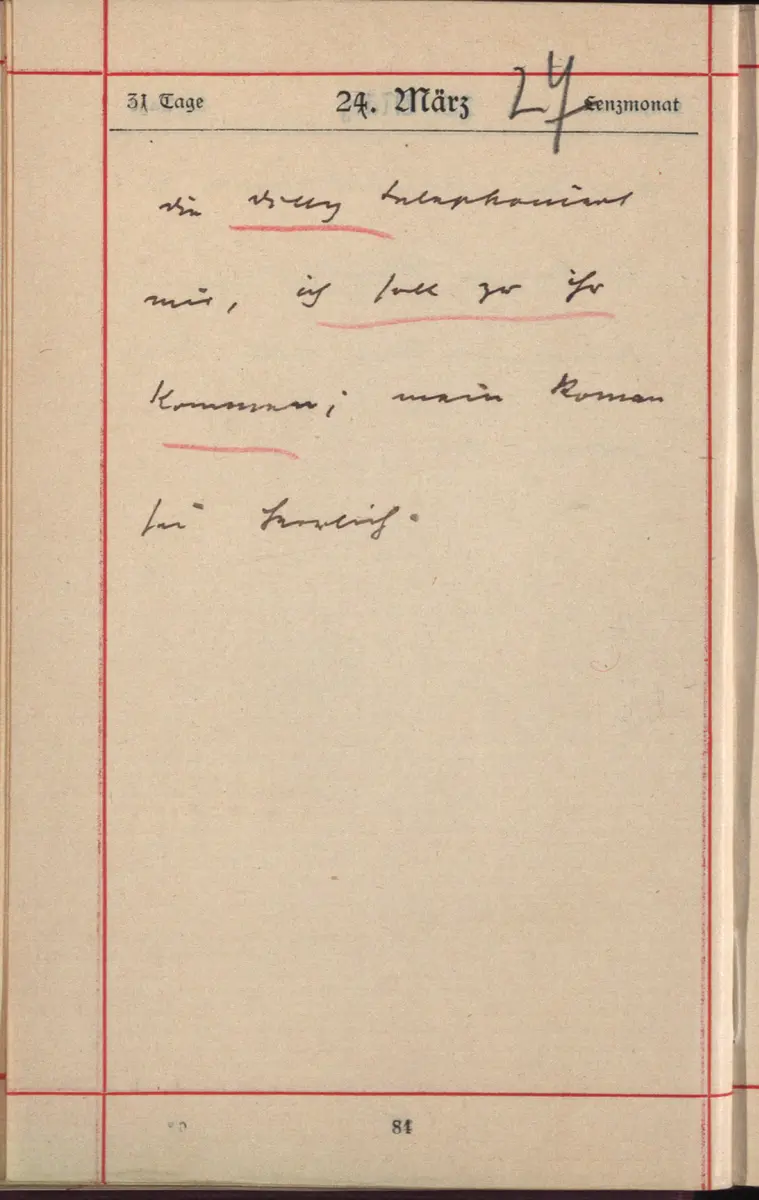 31 Tage 24. März 24 Lenzmonat
die Dilly telephoniert
mir, ich soll zu ihr
kommen; mein Roman
sei herrlich.
84